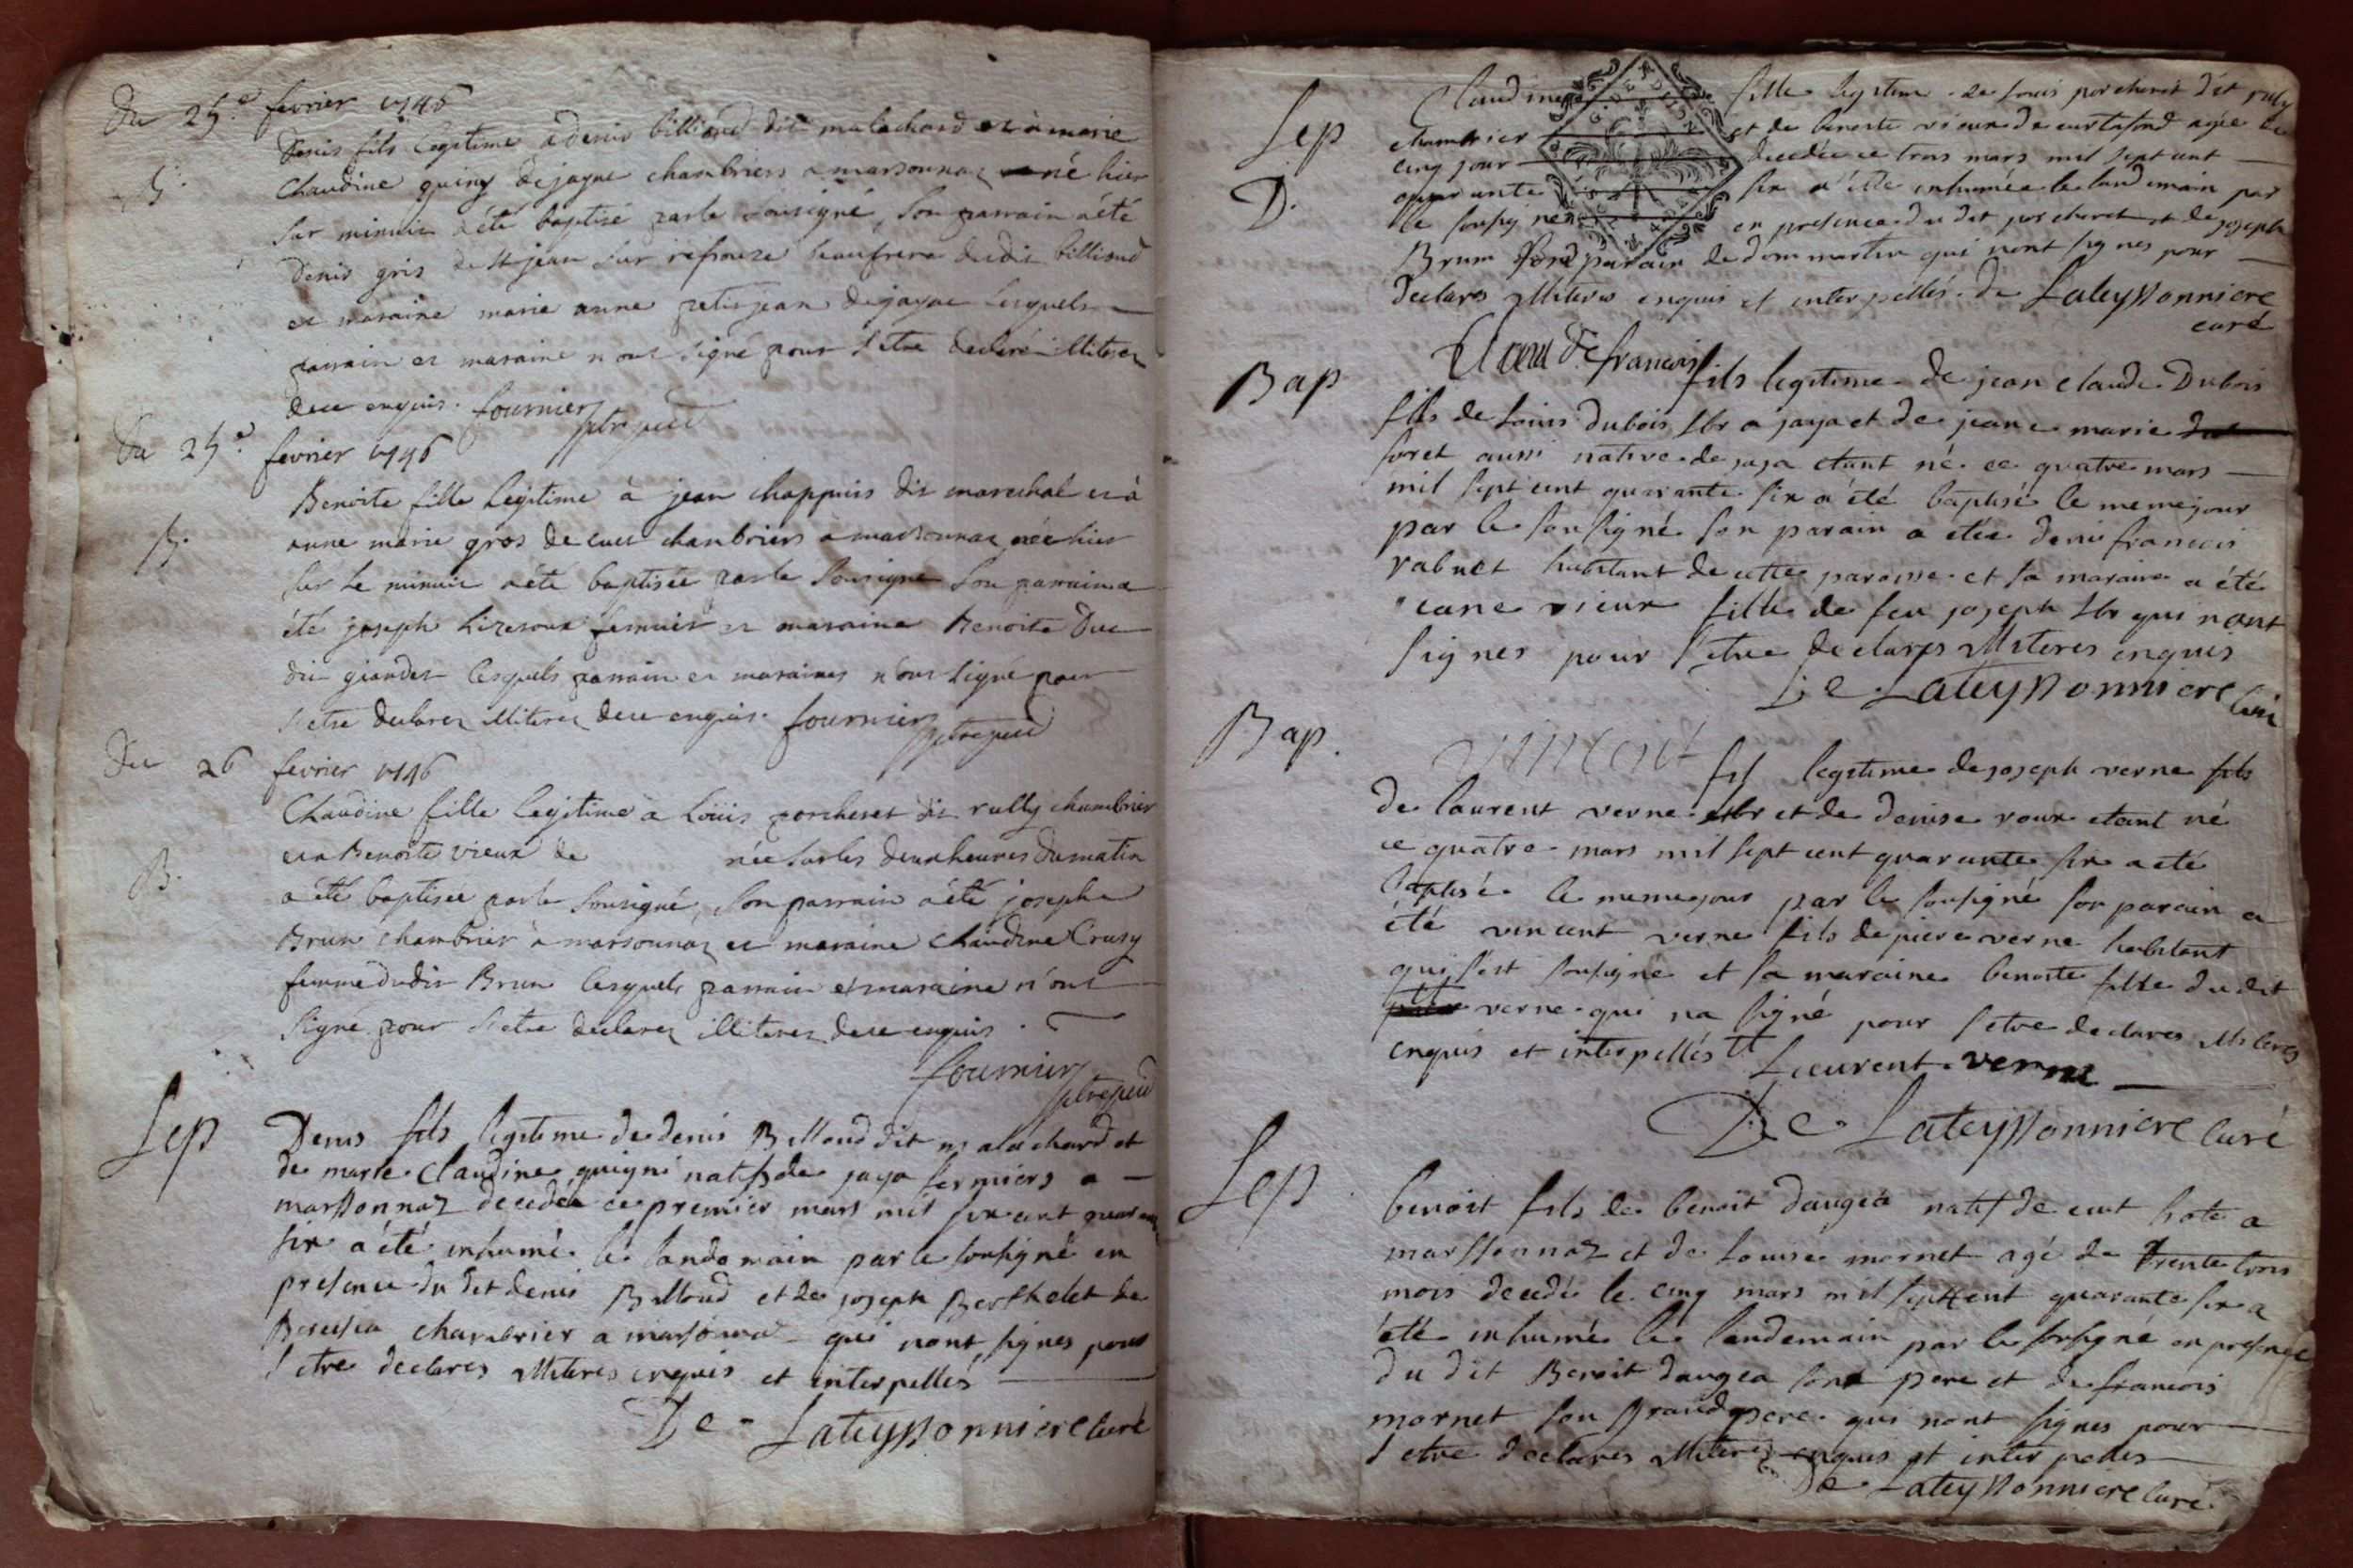 Du 25.e fevrier 1746
Denis fils legitime a denis billioud dit malachard et à marie
B. Claudine quiny de jayac chambriers a marsonnaz né hier
sur minuit a été baptisé par le sousigné, son parrain a été
denis gris de st jean sur resouze beaufrere dudit billioud
et maraine marie anne petitjean de jayac lesquels
parrain et maraine n'ont signé pour s'etre declaré illiterez
de ce enquis. fournier
Du 25.e fevrier 1746
Benoite fille legitime à jean chappuis dit marechal et à
B. anne marie gros de cuet chambriers a marsonnaz née hier
sur le minuit a été baptisée par le sousigné son parrain a
été joseph et maraine Benoite Duc
dit grandet lesquels parrain et maraines n'ont signé pour
s'etre declarez illiterez de ce enquis. fournier
Du 26 fevrier 1746
Claudine fille legitime a Loüis porcheret dit rully chambrier
et a Benoite vieux de née sur les deux heures du matin
B. a été baptisée par le sousigné, son parrain a été joseph
Brun chambrier à marsonnaz et maraine Claudine Crusy
femme dudit Brun lesquels parrain et maraine n'ont
signé pour s'etre declarez illiterez de ce enquis.
fournier
Sep Denis fils legitime de denis Billoud dit malachard et
de marie Claudine quigni natifs de jaya fermiers a
marssonnaz decedé ce premier mars mil sixcent quarante
six a été inhumé le landemain par le sousigné en
presence du dit denis Billoud et de joseph Berthelet de
chambrier a marsonnaz qui nont signes pour
s'etre declares illiteres enquis et interpellés
De Lateyssonniere curé
Sep Claudine fille legitime de Louis porcheret dit ruly
chambrier et de benoite vieux de curtafond agée de
cinq jour decedée ce trois mars mil sept cent
D. quarante six a été inhumée le landemain par
le sousigné en presence du dit porcheret et de joseph
Brun son parain de dommartin qui nont signes pour
declares illiteres enquis et interpellés. De Lateyssonniere
curé
Bap Claude francois fils legitime de jean claude Dubois
fils de Louis dubois lbr a jaya et de jeane marie
foret aussi native de jaya etant né ce quatre mars
mil sept cent quarante six a été baptisé le meme jour
par le sousigné son parain a etée denis francois
rabuet habitant de cette paroisse et sa maraine a été
jeane vieux fille de feu joseph lbr qui nont
signes pour s'etre declares illiteres enquis
De Lateyssonniere curé
Bap. vincent fil legitime de joseph verne fils
de laurent verne lbr et de denise roux etant né
ce quatre mars mil sept cent quarante six a eté
baptisé le meme jour par le sousigné son parain a
été vincent verne fils de piere verne habitant
qui s'est sousigné et sa maraine benoite fille du dit
verne qui na signé pour s'etre declares illiteres
enquis et interpellés Laurent verne
De Lateyssonniere curé
Sep. benoit fils de benoit daugea natif de cuet hote a
marssonnaz et de Louise mornet agé de trente trois
mois decedé le cinq mars mil sept cent quarante six a
été inhumé le landemain par le sousigné en presence
du dit Benoit daugea son pere et de francois
mornet son grand pere qui nont signes pour
s'etre declares illiteres enquis et interpelles
De Lateyssonniere curé